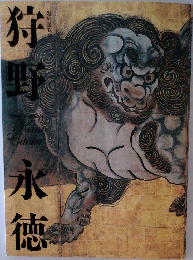 狩野永徳
Kano
Eitoku